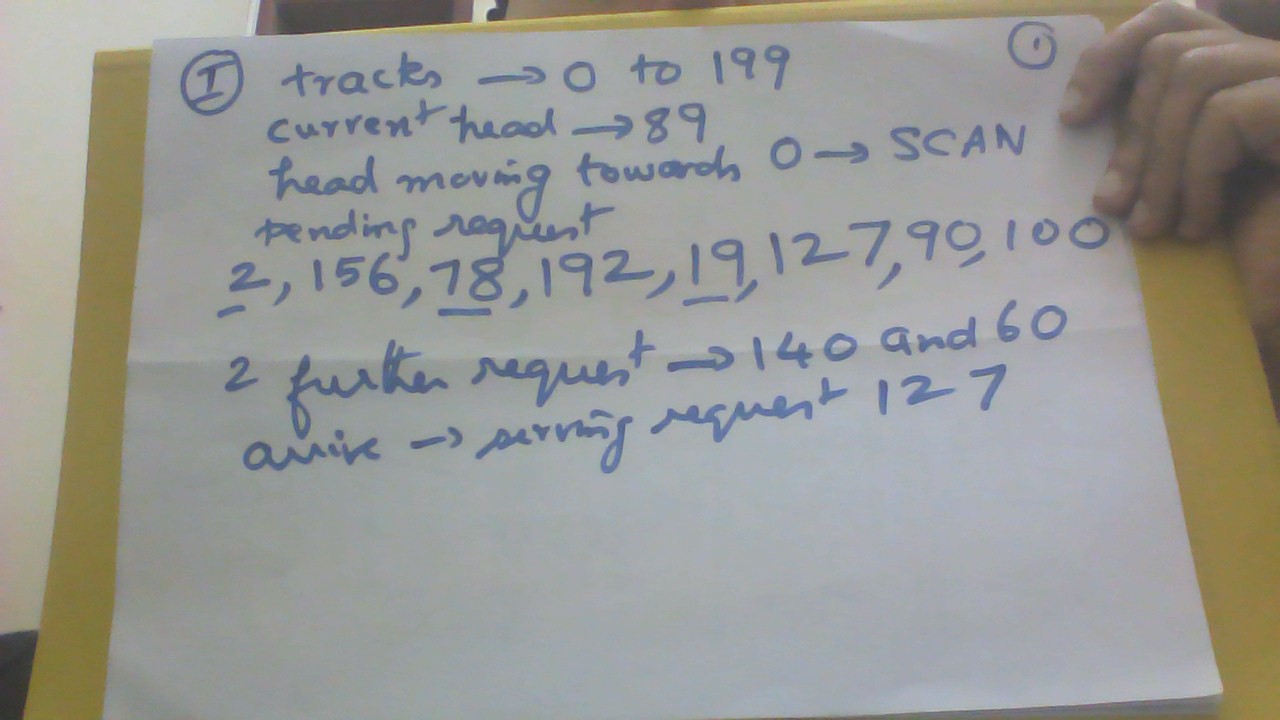 I tracks → 0 to 199 1
current head → 89
head moving towards 0 → SCAN
pending request
2, 156, 78, 192, 19, 127, 90, 100
2 further request → 140 and 60
arrive → serving request 127